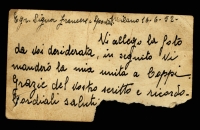 Egr. Signor Milano 16-6-52-
Vi allego la foto
da voi desiderata, in seguito Vi
manderò la mia unita a Coppi.
Grazie del vostro scritto e ricordo.
Cordiali saluti